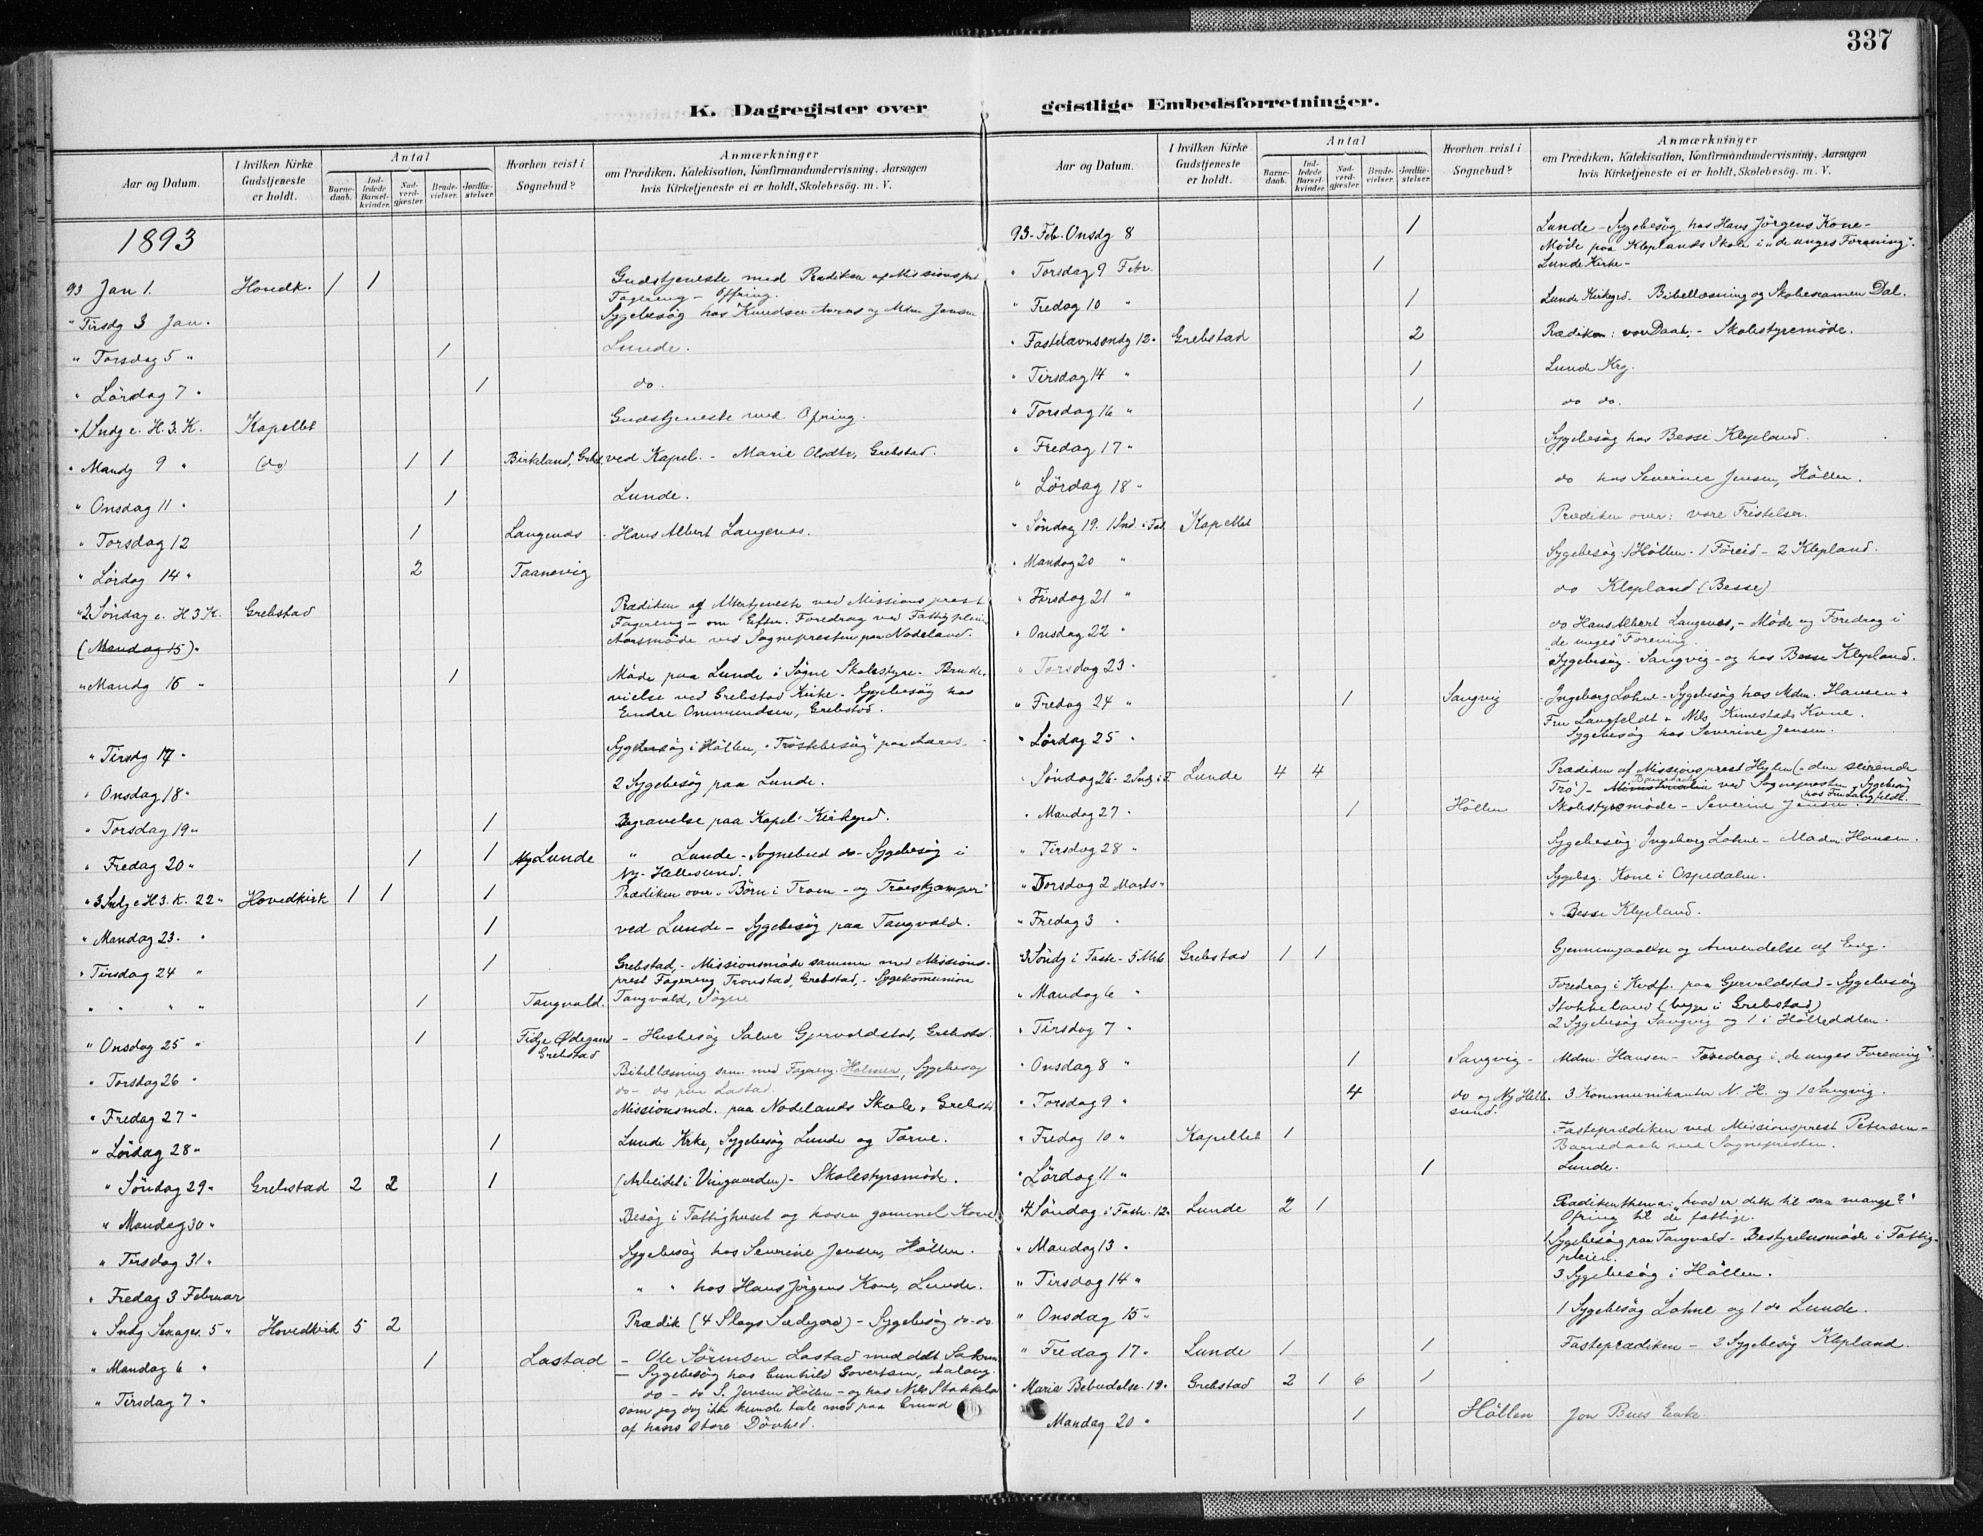 337
K. Dagregister over geistlige Embedsforretninger.
Aar og Datum.
I hvilken Kirke Gudstjeneste er holdt.
Antal
Barnedaab.
Indledede Barselkvinder.
Nadverdgjæster.
Brudevielser.
Jordfæstelser.
Hvorhen reist i Sognebud?
Anmærkninger
om Prædiken, Katekisation, Konfirmandundervisning, Aarsagen
hvis Kirketjeneste ei er holdt, Skolebesøg. m. V.
1893
93 Jan 1. Hovedk. 1 1 Gudstjeneste med Prædiken af Missionsprst
Fagereng - Offring.
" Tirsdg 3 Jan. Sygebesøg hos Knudsen Aaros og Mdm Jensen
" Torsdag 5 " 1 Lunde.
" Lördag 7 " 1 do.
" 1 Sndg e. H. 3. K. Kapellet Gudstjeneste med Ofring.
" Mandg 9 " (do) 1 1 Birkeland, Grbst. ved Kapel. - Marie Grebstad.
" Onsdag 11 " 1 Lunde.
" Torsdag 12 1 Langenæs - Hans Albert Langenæs.
" Lördag 14 " 2 Taanevig
" 2 Søndag e. H 3 K. Grebstad Prædiken og Altertjeneste ved Missionsprest
Fagereng - om Efter. Foredrag ved Fattigpleiens
(Mandag 15) " Aarsmøde ved Sognepresten paa Nodeland.
" Mandg 16 " 1 Møde paa Lunde i Søgne Skolestyre. Brude-
vielse ved Grebstad Kirke. Sygebesøg hos
Eindre Ommundsen, Grebstad.
" Tirsdg 17 " Sygebesøg i Höllen, "Tröstebesøg" paa Aaros.
" Onsdag 18 " 2 Sygebesøg paa Lunde.
" Torsdag 19 " 1 Begravelse paa Kapel. Kirkegrd.
" Fredag 20 " 1 1 Lunde " Lunde - Sognebud do - Sygebesøg i
Ny-Hellesund.
" 3 Sndg e H 3. K. 22 " Hovedkirk 1 1 1 Prædiken over "Børn i Troen - og Troeskjæmper"
" Mandag 23. " 1 ved Lunde - Sygebesøg paa Tangvald.
" Tirsdag 24 " 1 Grebstad, - Missionsmøde sammen med Missions-
prest Fagereng Tronstad, Grebstad, - Sygekomunion
" " " " 1 Tangvald. Tangvald, Søgne
" Onsdag 25 " 1 Tidje Ødegaard Grebstad - Husbesøg Salve Gjervoldstad, Grebstd.
" Torsdag 26 " Bibellæsning sam. med Fagereng. Holmen, Sygebesøg
do - do paa Lastad
" Fredag 27 " Missionsmd. paa Nodelands Skole, Grebstd
" Lördag 28 " 1 Lunde Krke, Sygebesøg Lunde og Torve.
" Søndag 29 " Grebstad 2 2 1 (Arbeidet i Vingaarden) - Skolestyrsmøde.
" Mandag 30 " Besøg i Fattighuset og hos en gammel Kone
" Tirsdag 31 " Sygebesøg hos Severine Jensen, Höllen.
" Fredag 3 Februar " " hos Hans Jörgens Kone, Lunde.
" Sndg Sexages. 5 " Hovedkirk 5 2 Prædik (4 Slags Sædejord) - Sygebesøg do-do.
" Mandag 6 " 1 Lastad - Ole Sørensen Lastad meddelt Sakrm
- Sygebesøg hos Gunhild Govertsen, Aaloug
" Tirsdag 7 " do - do S. Jensen Höllen - og hos Nils Stokkeland
som jeg dog ikke kunde tale med paa Grund
af hans store Døvhed.
Aar og Datum.
I hvilken Kirke Gudstjeneste er holdt.
Antal
Barnedaab.
Indledede Barselkvinder.
Nadverdgjæster.
Brudevielser.
Jordfæstelser.
Hvorhen reist i Sognebud?
Anmærkninger
om Prædiken, Katekisation, Konfirmandundervisning, Aarsagen
hvis Kirketjeneste ei er holdt, Skolebesøg. m. V.
93 - Feb. Onsdg 8 1 Lunde - Sygebesøg hos Hans Jörgens Kone -
Møde paa Kleplands Skole i "de unges Forening".
" Torsdag 9 Febr. 1 Lunde Kirke -
" Fredag 10 " 1 Lunde Kirkegrd. Bibellæsning og Skoleexamen Dal.
" Fastelavnssndg 12 " Grebstad 2 Prædiken: vor Daab. - Skolestyremøde.
" Tirsdag 14 " 1 Lunde Krg.
" Torsdag 16 " 1 do do.
" Fredag 17 " Sygebesøg hos Besse Klepland.
" Lördag 18 " do hos Severine Jensen, Höllen.
" Söndag 19. 1 Snd. i Fast. Kapellet Prædiken over: vore Fristelser.
" Mandag 20 " Sygebesøg. 1 Höllen - 1 Föreid - 2 Klepland.
" Tirsdag 21 " do Klepland (Besse)
" Onsdag 22 " do Hans Albert Langenæs, - Møde og Foredrag i
"de unges" Forening.
" Torsdag 23 " Sygebesøg. Sangvig - og hos Besse Klepland.
" Fredag 24 " 1 Sangvig - Ingeborg Lohne - Sygebesøg hos Mdm. Hansen +
Fru Langfeldt + Nils Kinnestads Kone.
" Lördag 25 " Sygebesøg hos Severine Jensen.
" Søndag 26 - 2 Sndg i F. Lunde 4 4 Prædiken af Missionsprest Heglen (den seirende
Tro) - Barnedaab ved Sognepresten, Sygebesøg
hos Fru Langfeldt.
" Mandag 27 " 1 Höllen Skolestyremøde - Severine Jensen.
" Tirsdag 28 " Sygebesøg Ingeborg Lohne - Madm Hansen.
" Torsdag 2 Marts " Sygebsg. Kone i Ospedalen.
" Fredag 3 " " Besse Klepland.
" 3 Søndg i Faste - 5 Mrts Grebstad 1 1 Gjennemgaaelse og Anvendelse af Evg.
" Mandag 6 " Foredrag i Kvdf. paa Gjervoldstad - Sygebesøg
Stokkeland (begge i Grebstad)
" Tirsdag 7 " 2 Sygebesøg Sangvig og 1 i Hölleddlen.
" Onsdag 8 " 1 Sangvig - Mdm. Hansen - Foredrag i "de unges Forening".
" Torsdag 9 " 4 do og Ny Hellesund. 3 Kommunikanter N. H. og 1 Sangvig.
" Fredag 10 " Kapellet 1 Fasteprædiken ved Missionsprest Petersen -
Barnedaab ved Sognepresten.
" Lördag 11 " 1 Lunde.
" 4 Søndag i Faste. 12 " Lunde 2 1 Prædikenthema: "hvad er dette til saa mange?"
Ofring til de fattige.
" Mandag 13 " 1 Sygebesøg paa Tangvald - Bestyrelsesmøde i Fattig-
pleien.
" Tirsdag 14 " 3 Sygebesøg i Höllen.
" Onsdag 15 " 1 Sygebesøg Lohne og 1 do Lunde.
" Fredag 17 " Lunde 1 1 Fasteprædiken - 2 Sygebesøg Klepland.
" Mariæ Bebudelse. 19 " Grebstad 2 1 6 1
Mandag 20 " 1 Höllen Jon Bues Enke.